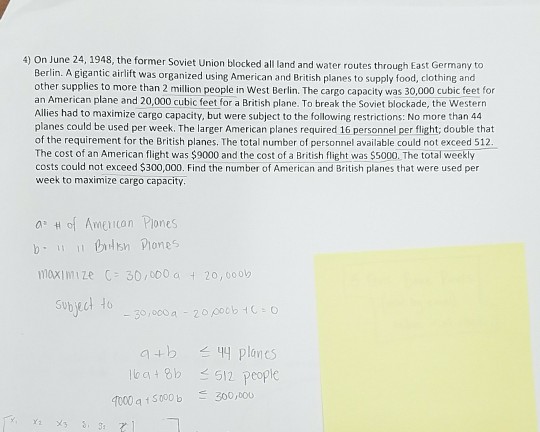 4) On June 24, 1948, the former Soviet Union blocked all land and water routes through East Germany to
Berlin. A gigantic airlift was organized using American and British planes to supply food, clothing and
other supplies to more than 2 million people in West Berlin. The cargo capacity was 30,000 cubic feet for
an American plane and 20,000 cubic feet for a British plane. To break the Soviet blockade, the Western
Allies had to maximize cargo capacity, but were subject to the following restrictions: No more than 44
planes could be used per week. The larger American planes required 16 personnel per flight; double that
of the requirement for the British planes. The total number of personnel available could not exceed 512.
The cost of an American flight was $9000 and the cost of a British flight was $5000. The total weekly
costs could not exceed $300,000. Find the number of American and British planes that were used per
week to maximize cargo capacity.
a= # of American Planes
b= " " British Planes
maximize C= 30,000a + 20,000b
subject to
-30,000a - 20,000b + C = 0
a+b ≤ 44 planes
16a+8b ≤ 512 people
9000a+5000b ≤ 300,000
X₁ X₂ X₃